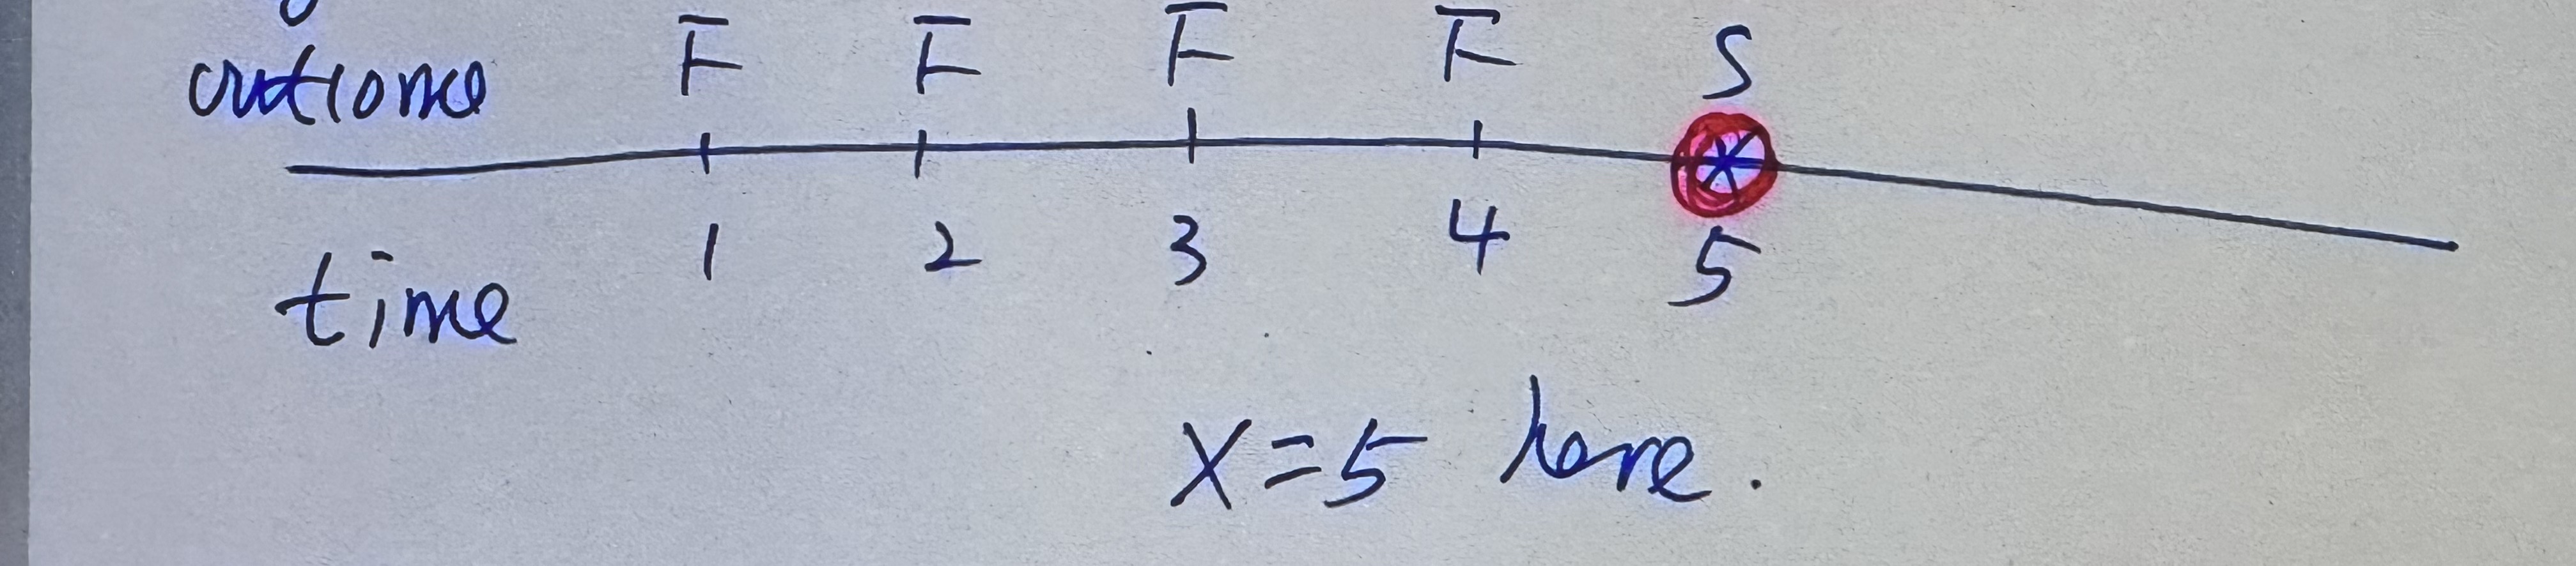 outcome F F F F S
time 1 2 3 4 5
X=5 here.